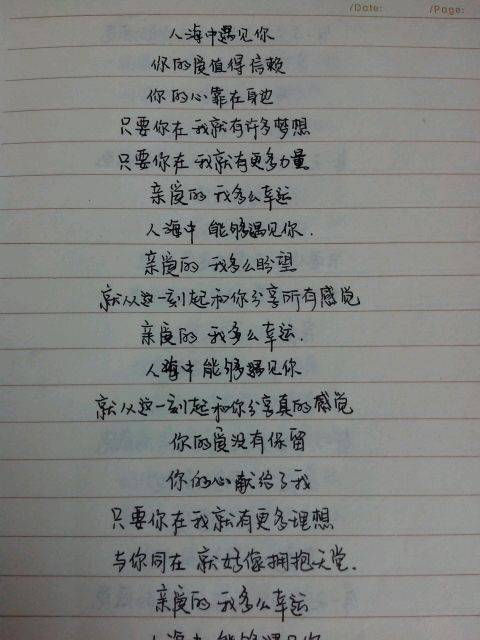 /Date: /Page:
人海中遇见你
你的爱值得信赖
你的心靠在身边
只要你在 我就有许多梦想
只要你在 我就有更多力量
亲爱的 我多么幸运
人海中 能够遇见你.
亲爱的 我多么盼望
就从这一刻起和你分享所有感觉
亲爱的 我多么幸运.
人海中 能够遇见你
就从这一刻起和你分享真的感觉
你的爱没有保留
你的心献给了我
只要你在 我就有更多理想
与你同在 就好像拥抱天堂.
亲爱的 我多么幸运
人海中 能够遇见你